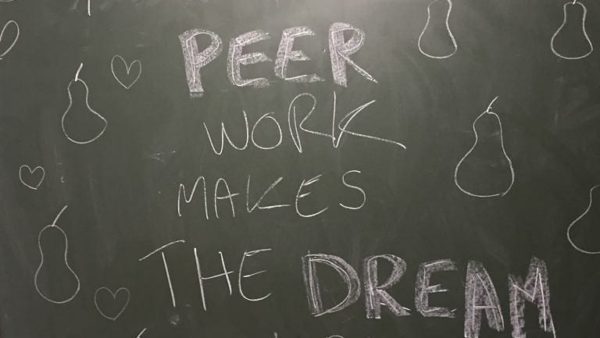 PEER
WORK
MAKES
THE DREAM